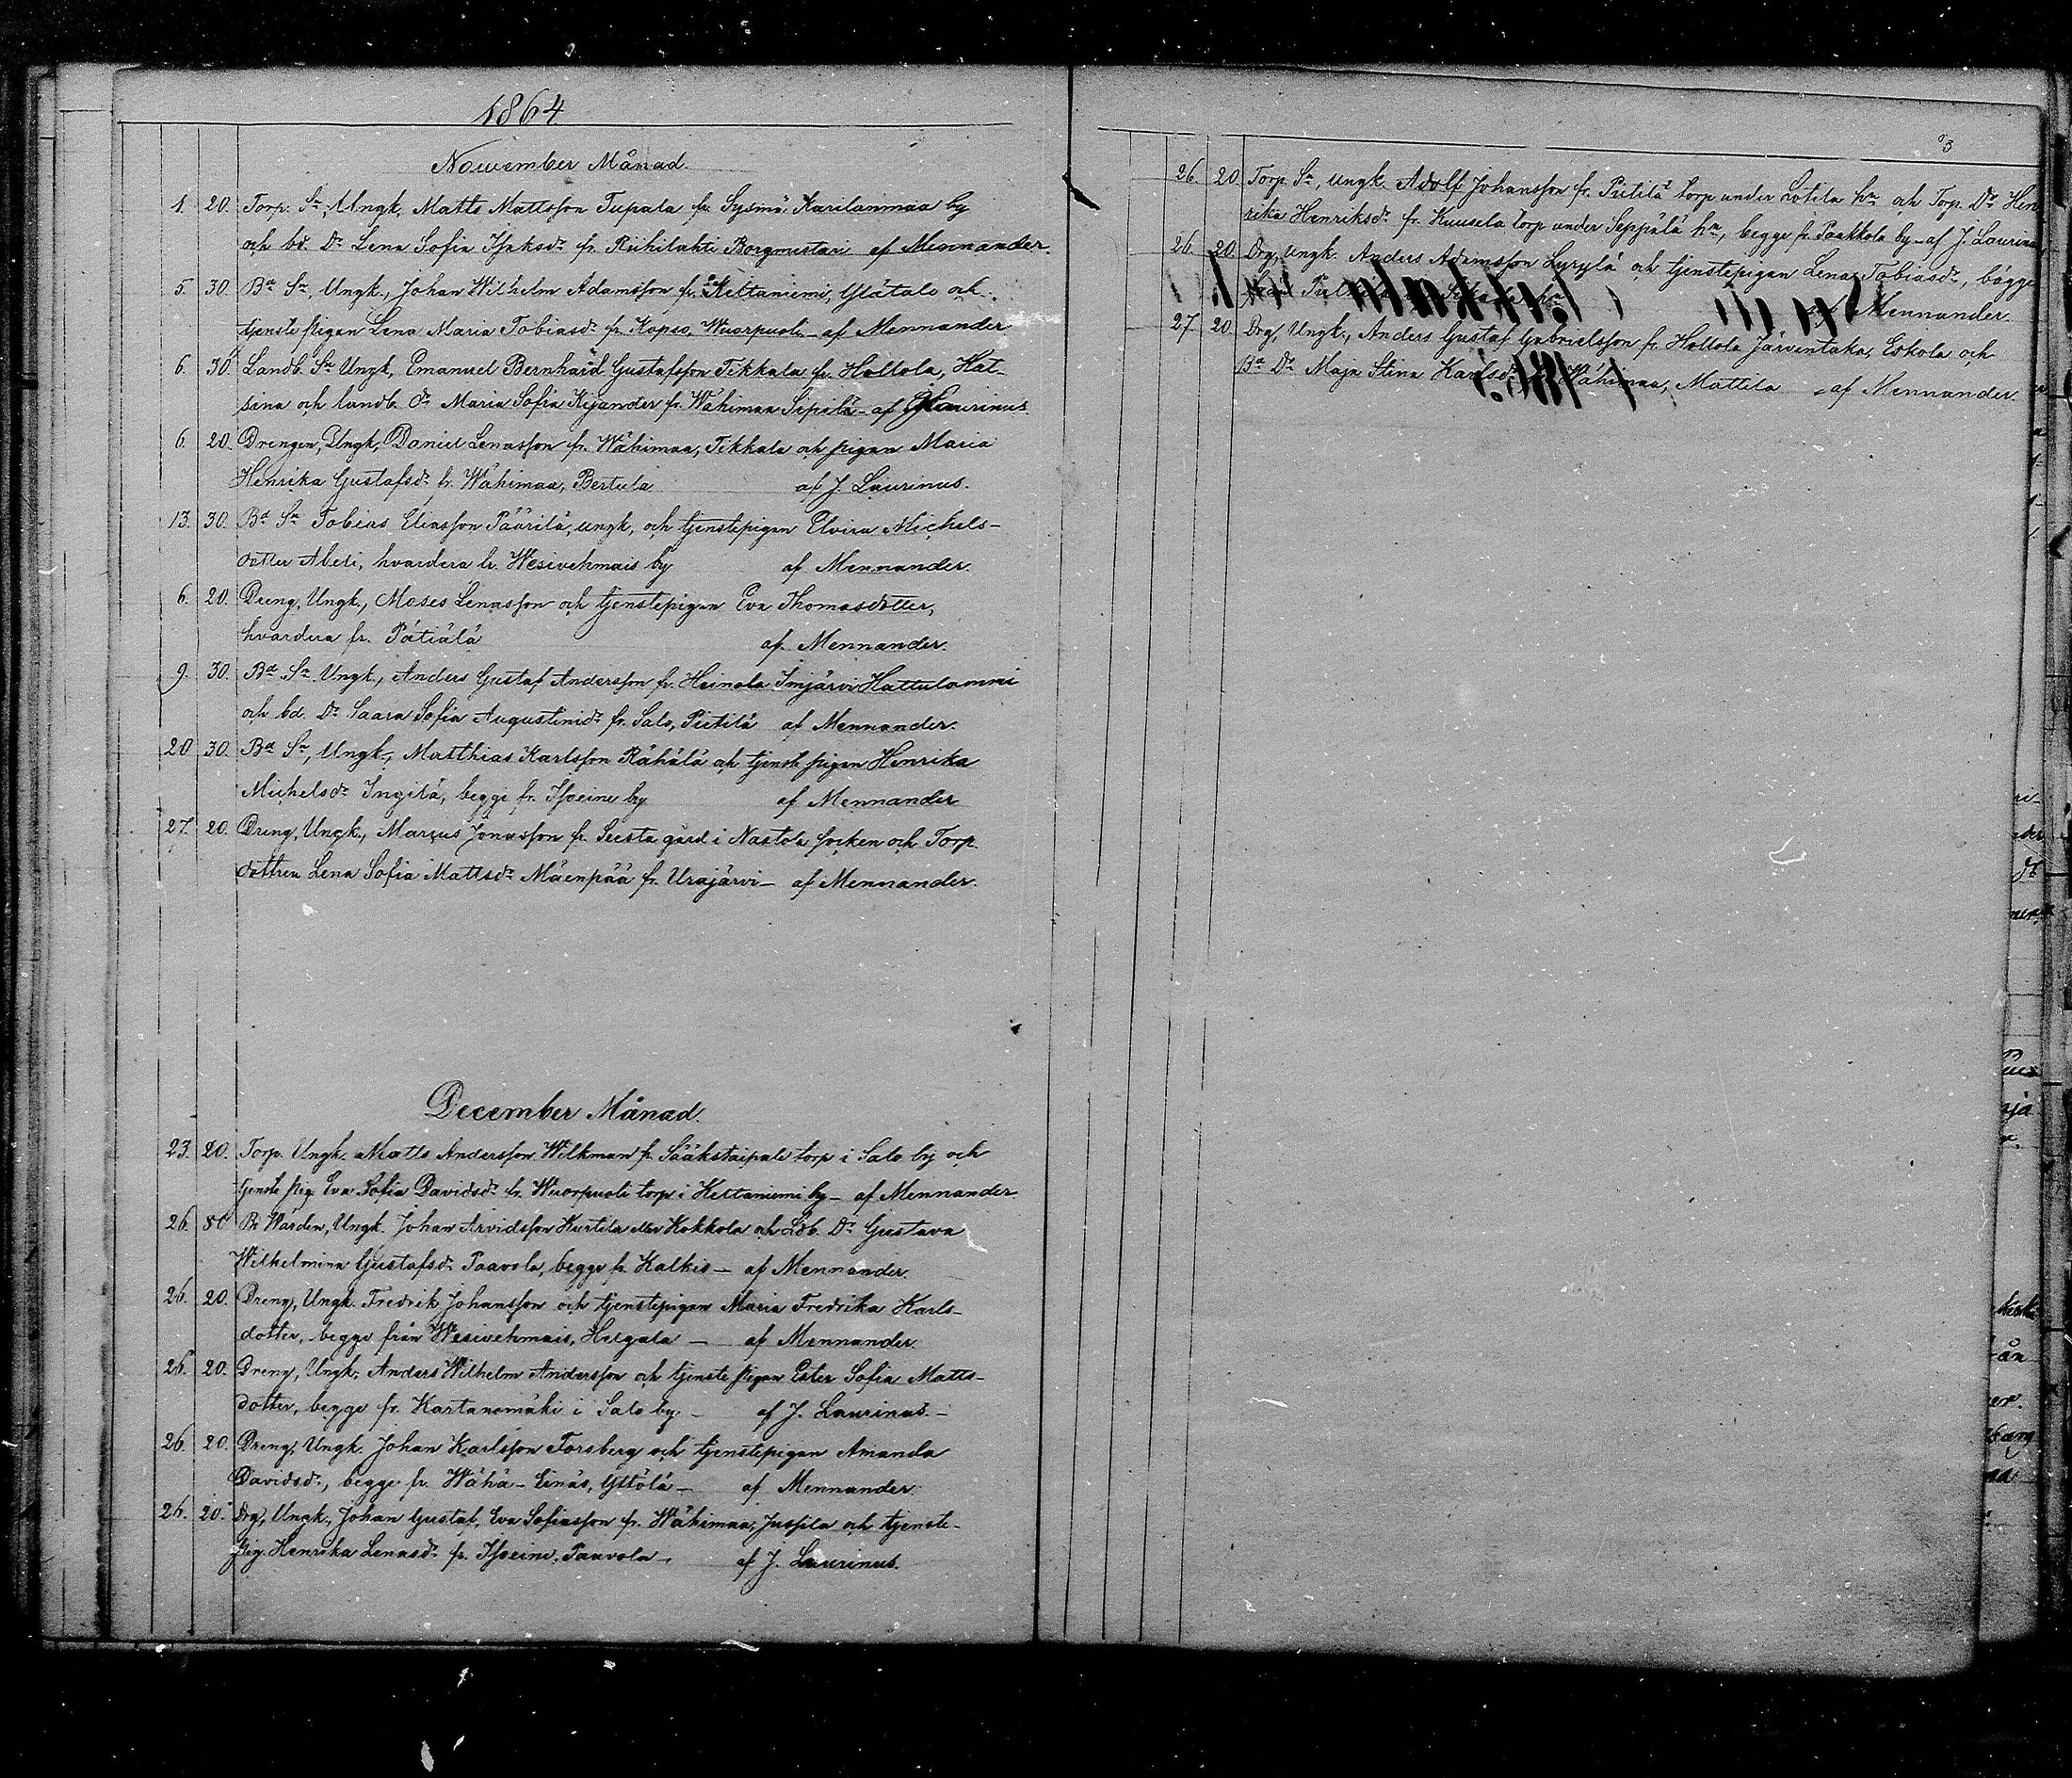 1864
November Månad.
1. 20. Torp. Sn, Ungk. Matts Mattsson Tupala fr. Sysmä Karilanmaa by
och bd. Dr Lena Sofia Isaksdr fr. Riihilahti Borgmestari af Mennander.
5. 30. Bd Sn, Ungk., Johan Wilhelm Adamsson fr. Kettaniemi, Ylätalo och
tjenstepigan Lena Maria Tobiasdr fr. Kopso, Wuorpuoli – af Mennander
6. 30. Landb. Sn Ungk, Emanuel Bernhard Gustafsson Tikkala fr. Hollola, Hat-
sina och landb. Dr Maria Sofia Kejander fr. Wähimaa Sipilä – af J Laurinus.
6. 20. Drengen, Ungk, Daniel Lenasson fr. Wähimaa, Tikkala och pigan Maria
Henrika Gustafsdr fr. Wähimaa, Bertula af J. Laurinus.
13. 30. Bd Sn Tobias Eliasson Pääritä, ungk, och tjenstepigan Elvira Michels-
dotter Abeli, hvardera fr. Wesivehmais by af Mennander.
6. 20. Dreng, Ungk., Moses Lenasson och tjenstepigan Eva Thomasdotter,
hvardera fr. Pätiälä af Mennander.
9. 30. Bd Sn Ungk., Anders Gustaf Andersson fr. Heinola Imjärvi Hattulammi
och bd. Dr Saara Sofia Augustinidr fr. Salo, Pietilä af Mennander.
20 30. Bd Sn, Ungk., Matthias Karlsson Rähälä och tjenste pigan Henrika
Michelsdr Ingilä, begge fr. Isoeine by af Mennander
27. 20. Dreng, Ungk., Marcus Jonasson fr. Seesta gård i Nastola socken och Torp.
dottren Lena Sofia Mattsdr Mäenpää fr. Urajärvi – af Mennander.
December Månad.
23. 20. Torp. Ungk. Matts Andersson Wilkman fr. Sääkstaipale torp i Salo by och
tjenste pig. Eva Sofia Davidsdr fr. Wuorpuoli torp i Kettaniemi by – af Mennander
26. Bo Wärden, Ungk. Johan Arvidsson Kurtila eller Kokkola och Ldb. Dr Gustava
Wilhelmina Gustafsdr Paavola, begge fr. Kalkis – af Mennander.
26. 20. Dreng, Ungk. Fredrik Johansson och tjenstepigan Maria Fredrika Karls-
dotter, begge från Wesivehmais, Heigala – af Mennander.
26. 20. Dreng, Ungk. Anders Wilhelm Andersson och tjenste pigan Ester Sofia Matts-
dotter, begge fr. Kartanomäki i Salo by – af J. Laurinus. –
26. 20. Dreng, Ungk. Johan Karlsson Forsberg och tjenstepigan Amanda
Davidsdr, begge fr. Wähä-Einäs, Yttölä – af Mennander.
26. 20. Drg, Ungk., Johan Gustaf, Eva Sofiasson fr. Wähimaa, Jussila och tjenste-
pig. Henrika Lenasdr fr. Isoeine, Paavola – af J. Laurinus.
3
26. 20. Torp. Sn, ungk. Adolf Johansson fr. Pietilä torp under Lötilä hn och Torp. Dr Hen
rika Henriksdr fr. Kuusela torp under Seppälä hn, begge fr. Paakkola by – af J. Laurinus
26. 20. Drg, ungk. Anders Adamsson Lyrylä och tjenstepigan Lena Tobiasdr, bägge
Mennander.
27. 20. Drg, Ungk., Anders Gustaf Gabrielsson fr. Hollola Järventaka, Eskola och
Bd Dr Maja Stina Karlsdr Wähimaa, Mattila – af Mennander.